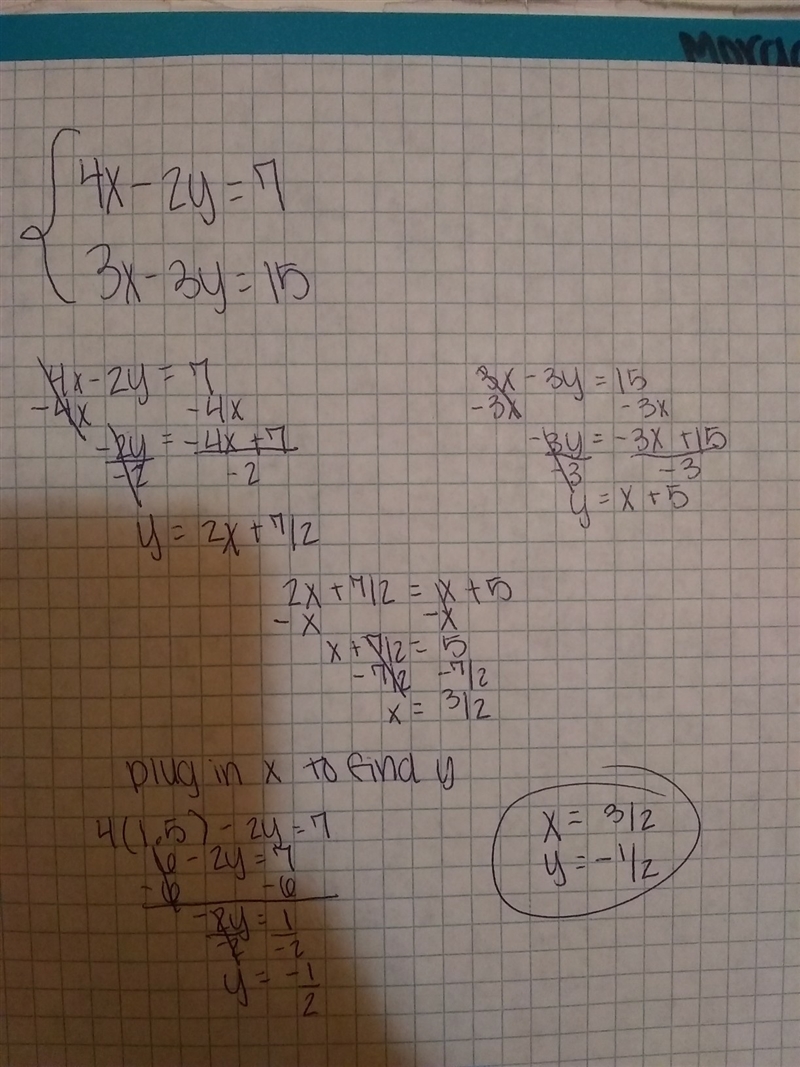 4x - 2y = 7
3x - 3y = 15
4x - 2y = 7
-4x -4x
-2y = -4x + 7
-2 -2
y = 2x + 7/2
3x - 3y = 15
-3x -3x
-3y = -3x + 15
-3 -3
y = x + 5
2x + 7/2 = x + 5
- x -x
x + 7/2 = 5
- 7/2 -7/2
x = 3/2
plug in x to find y
4(1.5) - 2y = 7
6 - 2y = 7
-6 -6
-2y = 1
-2 -2
y = -1
2
x = 3/2
y = -1/2